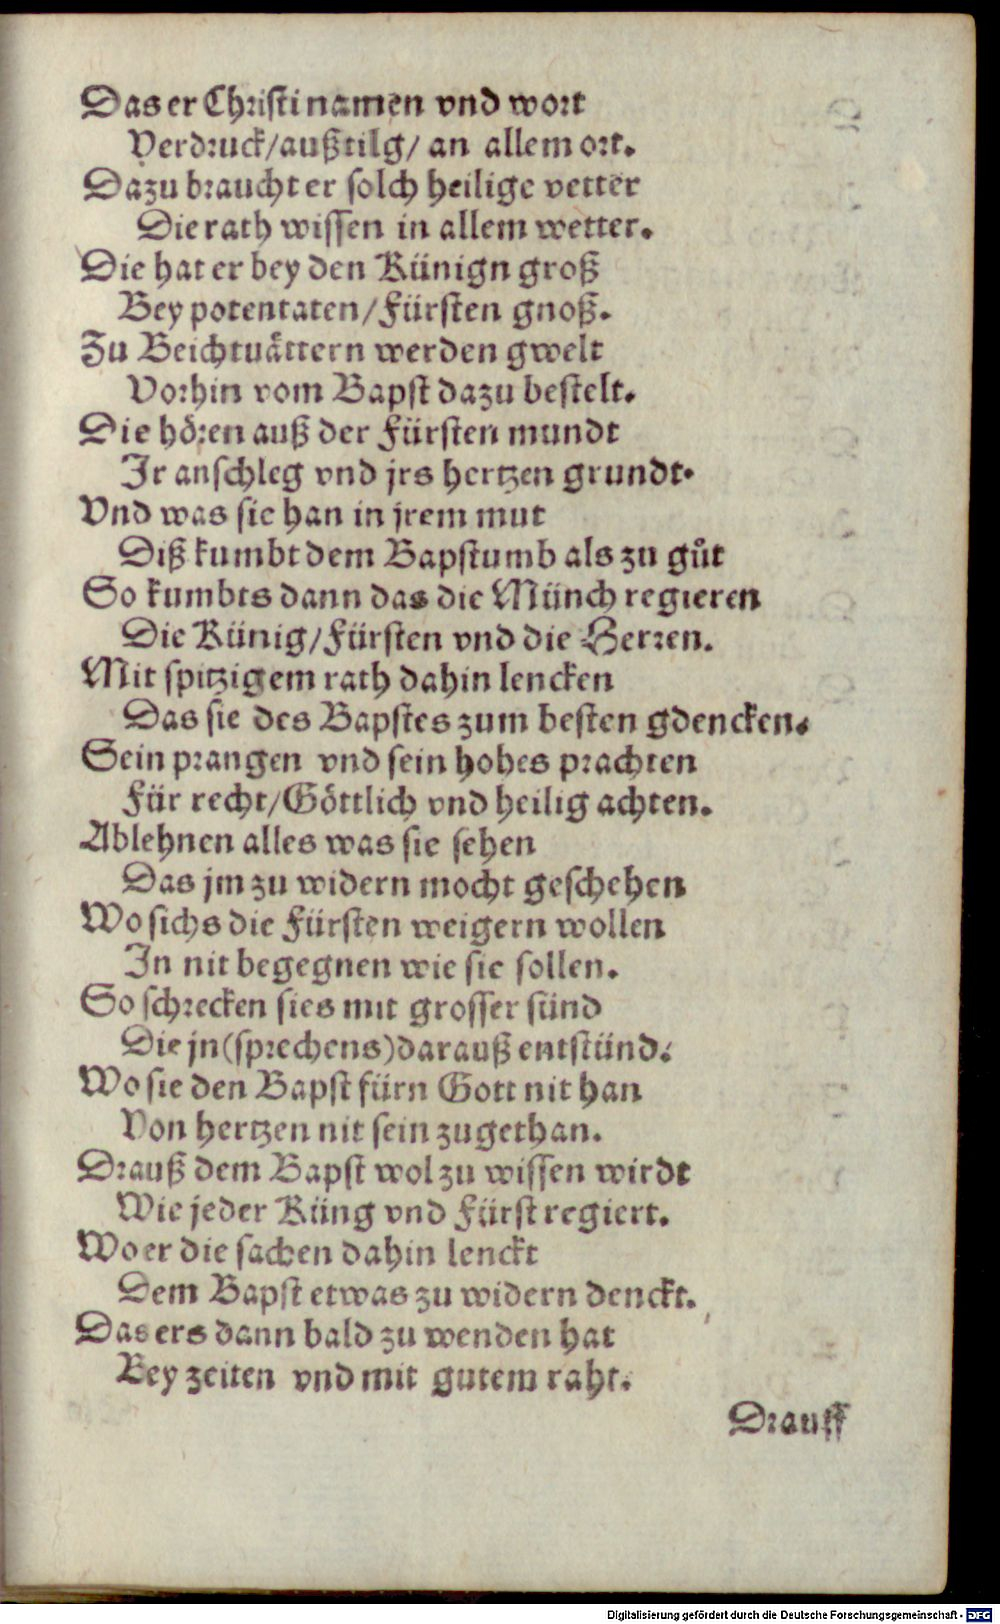 Das er Christi namen vnd wort
Verdruck/außtilg/ an allem ort.
Dazu braucht er solch heilige vetter
Die rath wissen in allem wetter.
Die hat er bey den Künign groß
Bey potentaten/Fürsten gnoß.
Zu Beichtuåttern werden gwelt
Vorhin vom Bapst dazu bestelt.
Die hören auß der Fürsten mundt
Ir anschleg vnd jrs hertzen grundt.
Vnd was sie han in jrem mut
Diß kumbt dem Bapstumb als zu gůt
So kumbts dann das die Münch regieren
Die Künig/Fürsten vnd die Herren.
Mit spitzigem rath dahin lencken
Das sie des Bapstes zum besten gdencken.
Sein prangen vnd sein hohes prachten
Für recht/Göttlich vnd heilig achten.
Ablehnen alles was sie sehen
Das jm zu widern mocht geschehen
Wo sichs die Fürsten weigern wollen
In nit begegnen wie sie sollen.
So schrecken sies mit grosser sünd
Die jn (sprechens) darauß entstünd.
Wo sie den Bapst fürn Gott nit han
Von hertzen nit sein zugethan.
Drauß dem Bapst wol zu wissen wirdt
Wie jeder Küng vnd Fürst regiert.
Wo er die sachen dahin lenckt
Dem Bapst etwas zu widern denckt.
Das ers dann bald zu wenden hat
Bey zeiten vnd mit gutem raht.
Drauff
Digitalisierung gefördert durch die Deutsche Forschungsgemeinschaft - DFG